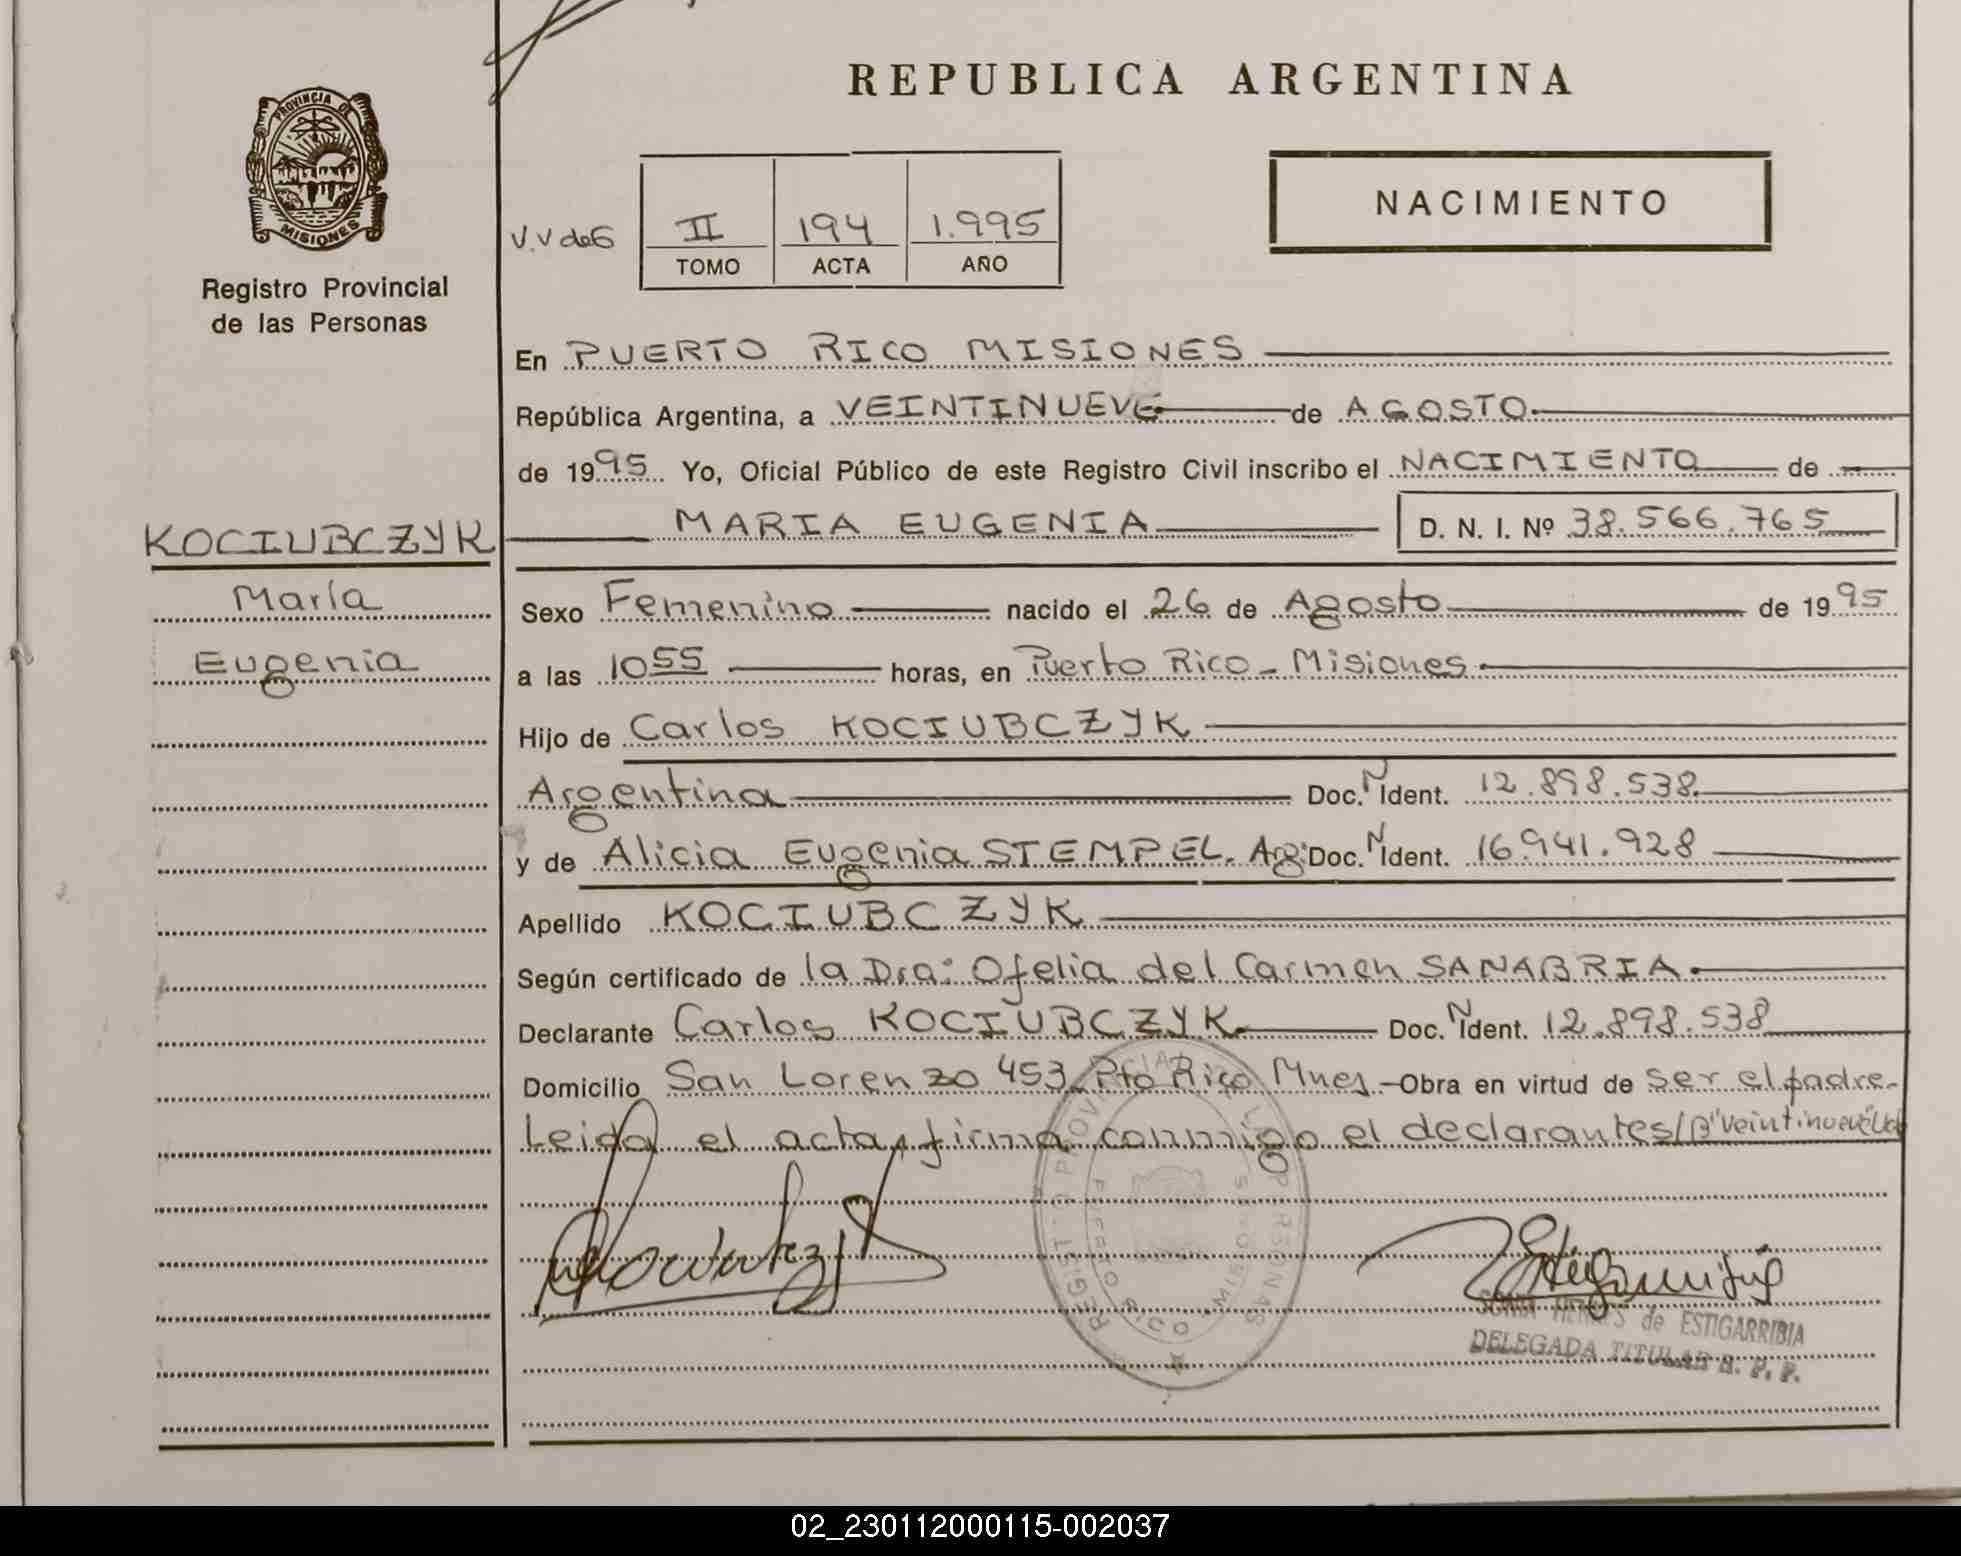 REPUBLICA ARGENTINA
PROVINCIA DE
MISIONES
Registro Provincial
de las Personas
NACIMIENTO
V.V de G
II 194 1.995
TOMO ACTA AÑO
En PUERTO RICO MISIONES
República Argentina, a VEINTINUEVE de AGOSTO
de 1995 Yo, Oficial Público de este Registro Civil inscribo el NACIMIENTO de
KOCIUBCZYK MARIA EUGENIA D. N. I. Nº 38.566.765
María
Eugenia
Sexo Femenino nacido el 26 de Agosto de 1995
a las 10 55 horas, en Puerto Rico - Misiones
Hijo de Carlos KOCIUBCZYK
Argentina Doc. N Ident. 12.898.538
y de Alicia Eugenia STEMPEL. Arg. Doc. N Ident. 16.941.928
Apellido KOCIUBCZYK
Según certificado de la Dra: Ofelia del Carmen SANABRIA
Declarante Carlos KOCIUBCZYK Doc. N Ident. 12.898.538
Domicilio San Lorenzo 453 Pto Rico Mnes - Obra en virtud de ser el padre-
Leida el acta, firma conmigo el declarante s/R "veintinueve" Vale
REGISTRO PROVINCIAL DE LAS PERSONAS
PUERTO RICO MISIONES
de ESTIGARRIBIA
DELEGADA TITULAR R. P. P.
02_230112000115-002037